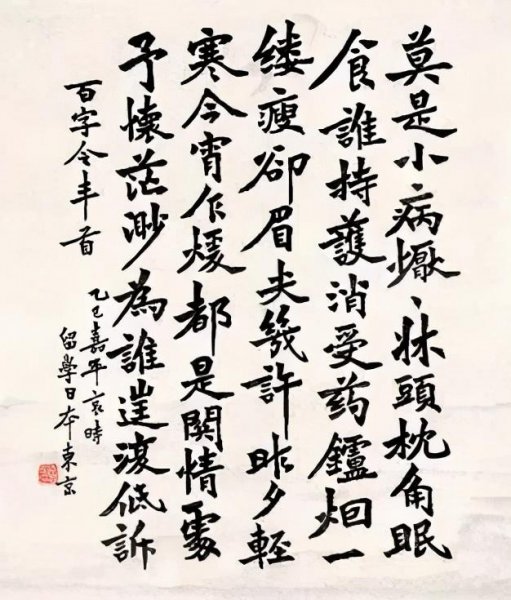 莫是小病懨、牀頭枕角眠
食誰持護消受药鑪烟一
缕瘦卻眉夫幾許昨夕輕
寒今宵乍煖都是関情處
予懷茫渺為誰低訴
百字令半首
乙巳嘉平亥時
留學日本東京